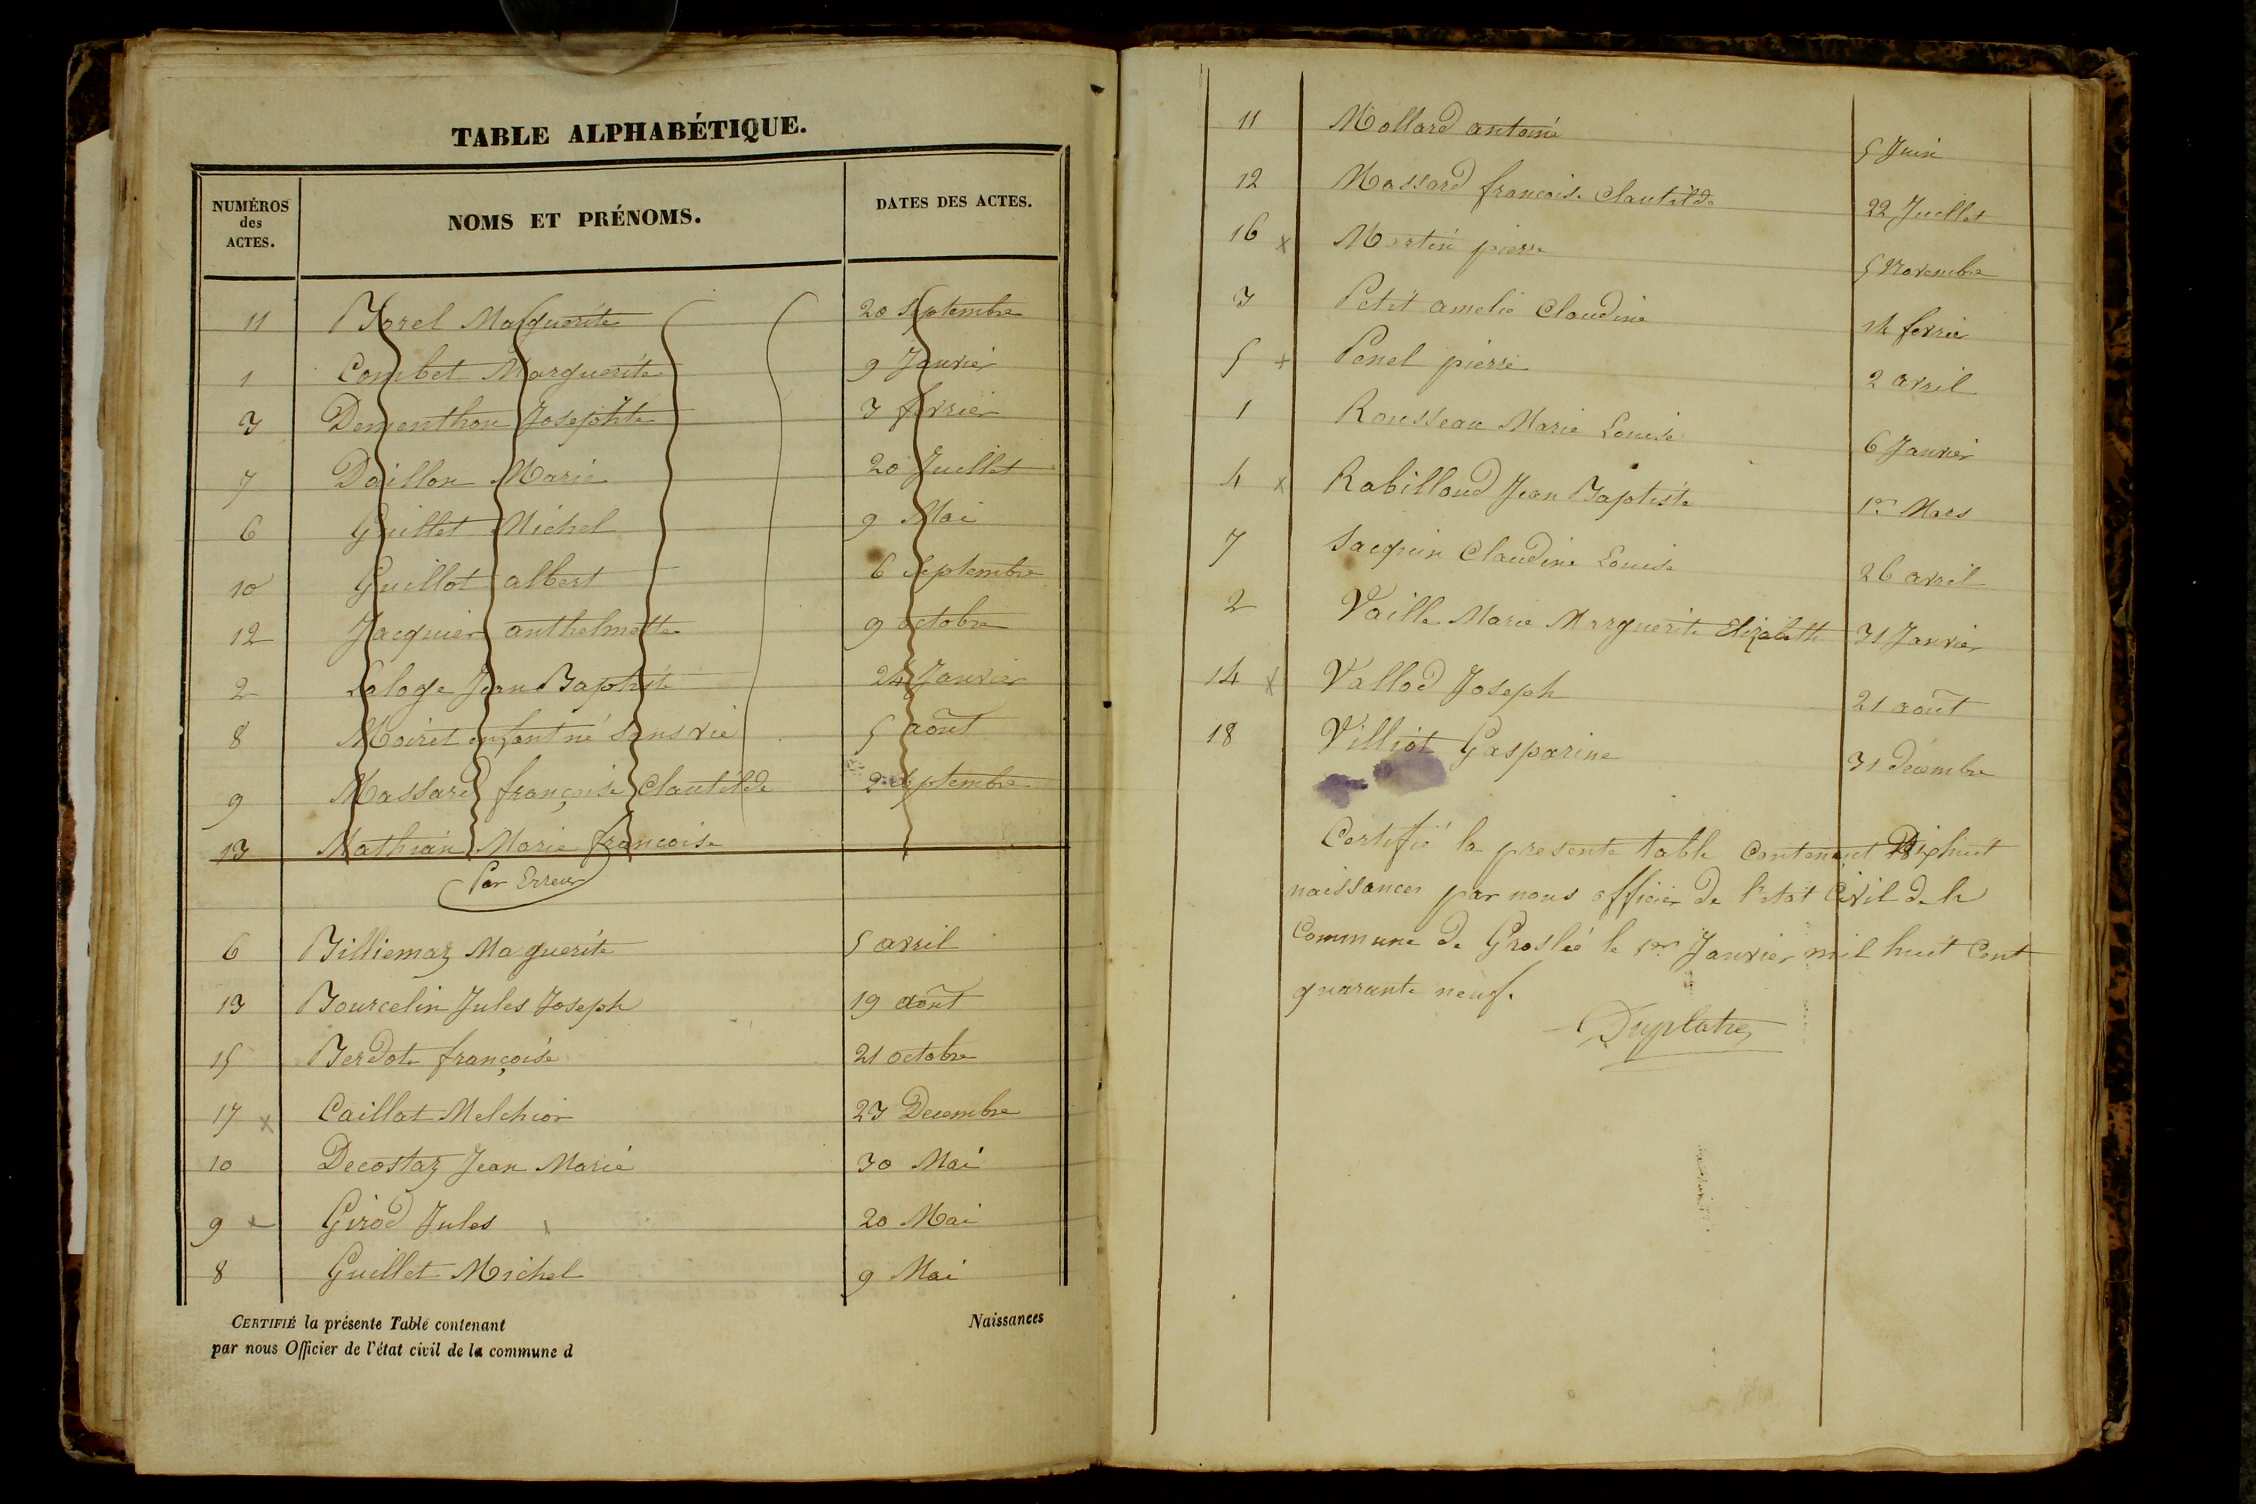 TABLE ALPHABÉTIQUE.
NUMÉROS des ACTES. NOMS ET PRÉNOMS. DATES DES ACTES.
11 Borel Marguerite 20 Septembre
1 Combet Marguerite 9 Janvier
3 Dementhon Josephte 3 fevrier
7 Daillon Marie 20 Juillet
6 Guillet Michel 9 Mai
10 Guillot albert 6 Septembre
12 Jacquier anthelmette 9 octobre
2 Laloge Jean Baptiste 24 Janvier
8 Moiret enfant né sans vie 5 août
9 Massard françoise Clautilde 2 Septembre
13 Mathian Marie francoise
Par Erreur
6 Billiemaz Maguerite 5 avril
13 Bourcelin Jules Joseph 19 août
15 Berdote françoise 21 octobre
17 x Caillat Melchior 23 Decembre
10 Decostaz Jean Marie 30 Mai
9 x Girod Jules x 20 Mai
8 Guillet Michel 9 Mai
CERTIFIÉ la présente Table contenant Naissances
par nous Officier de l'état civil de la commune d
11 Mollard antoine 5 Juin
12 Massard francoise Clautilde 22 Juillet
16 x Martin pierre 5 Novembre
3 Petit amelie Claudine 14 fevrier
5 x Penel pierre 2 avril
1 Rousseau Marie Louise 6 Janvier
4 x Rabilloud Jean Baptiste 1er Mars
7 Jacquin Claudine Louise 26 avril
2 Vaille Marie Marguerite Elizabeth 31 Janvier
14 x Vallod Joseph 21 août
18 Villiot Gasparine 31 decembre
Certifié la presente table Contenant Dixhuit
naissances par nous officier de l'etat Civil de la
Commune de Groslée le 1er Janvier mil huit Cent
quarante neuf.
Duplatre